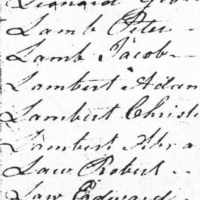 Leonard
Lamb Peter
Lamb Jacob
Lambert Adam
Lambert Christ
Lambert Abra
Law Robert
Law Edward